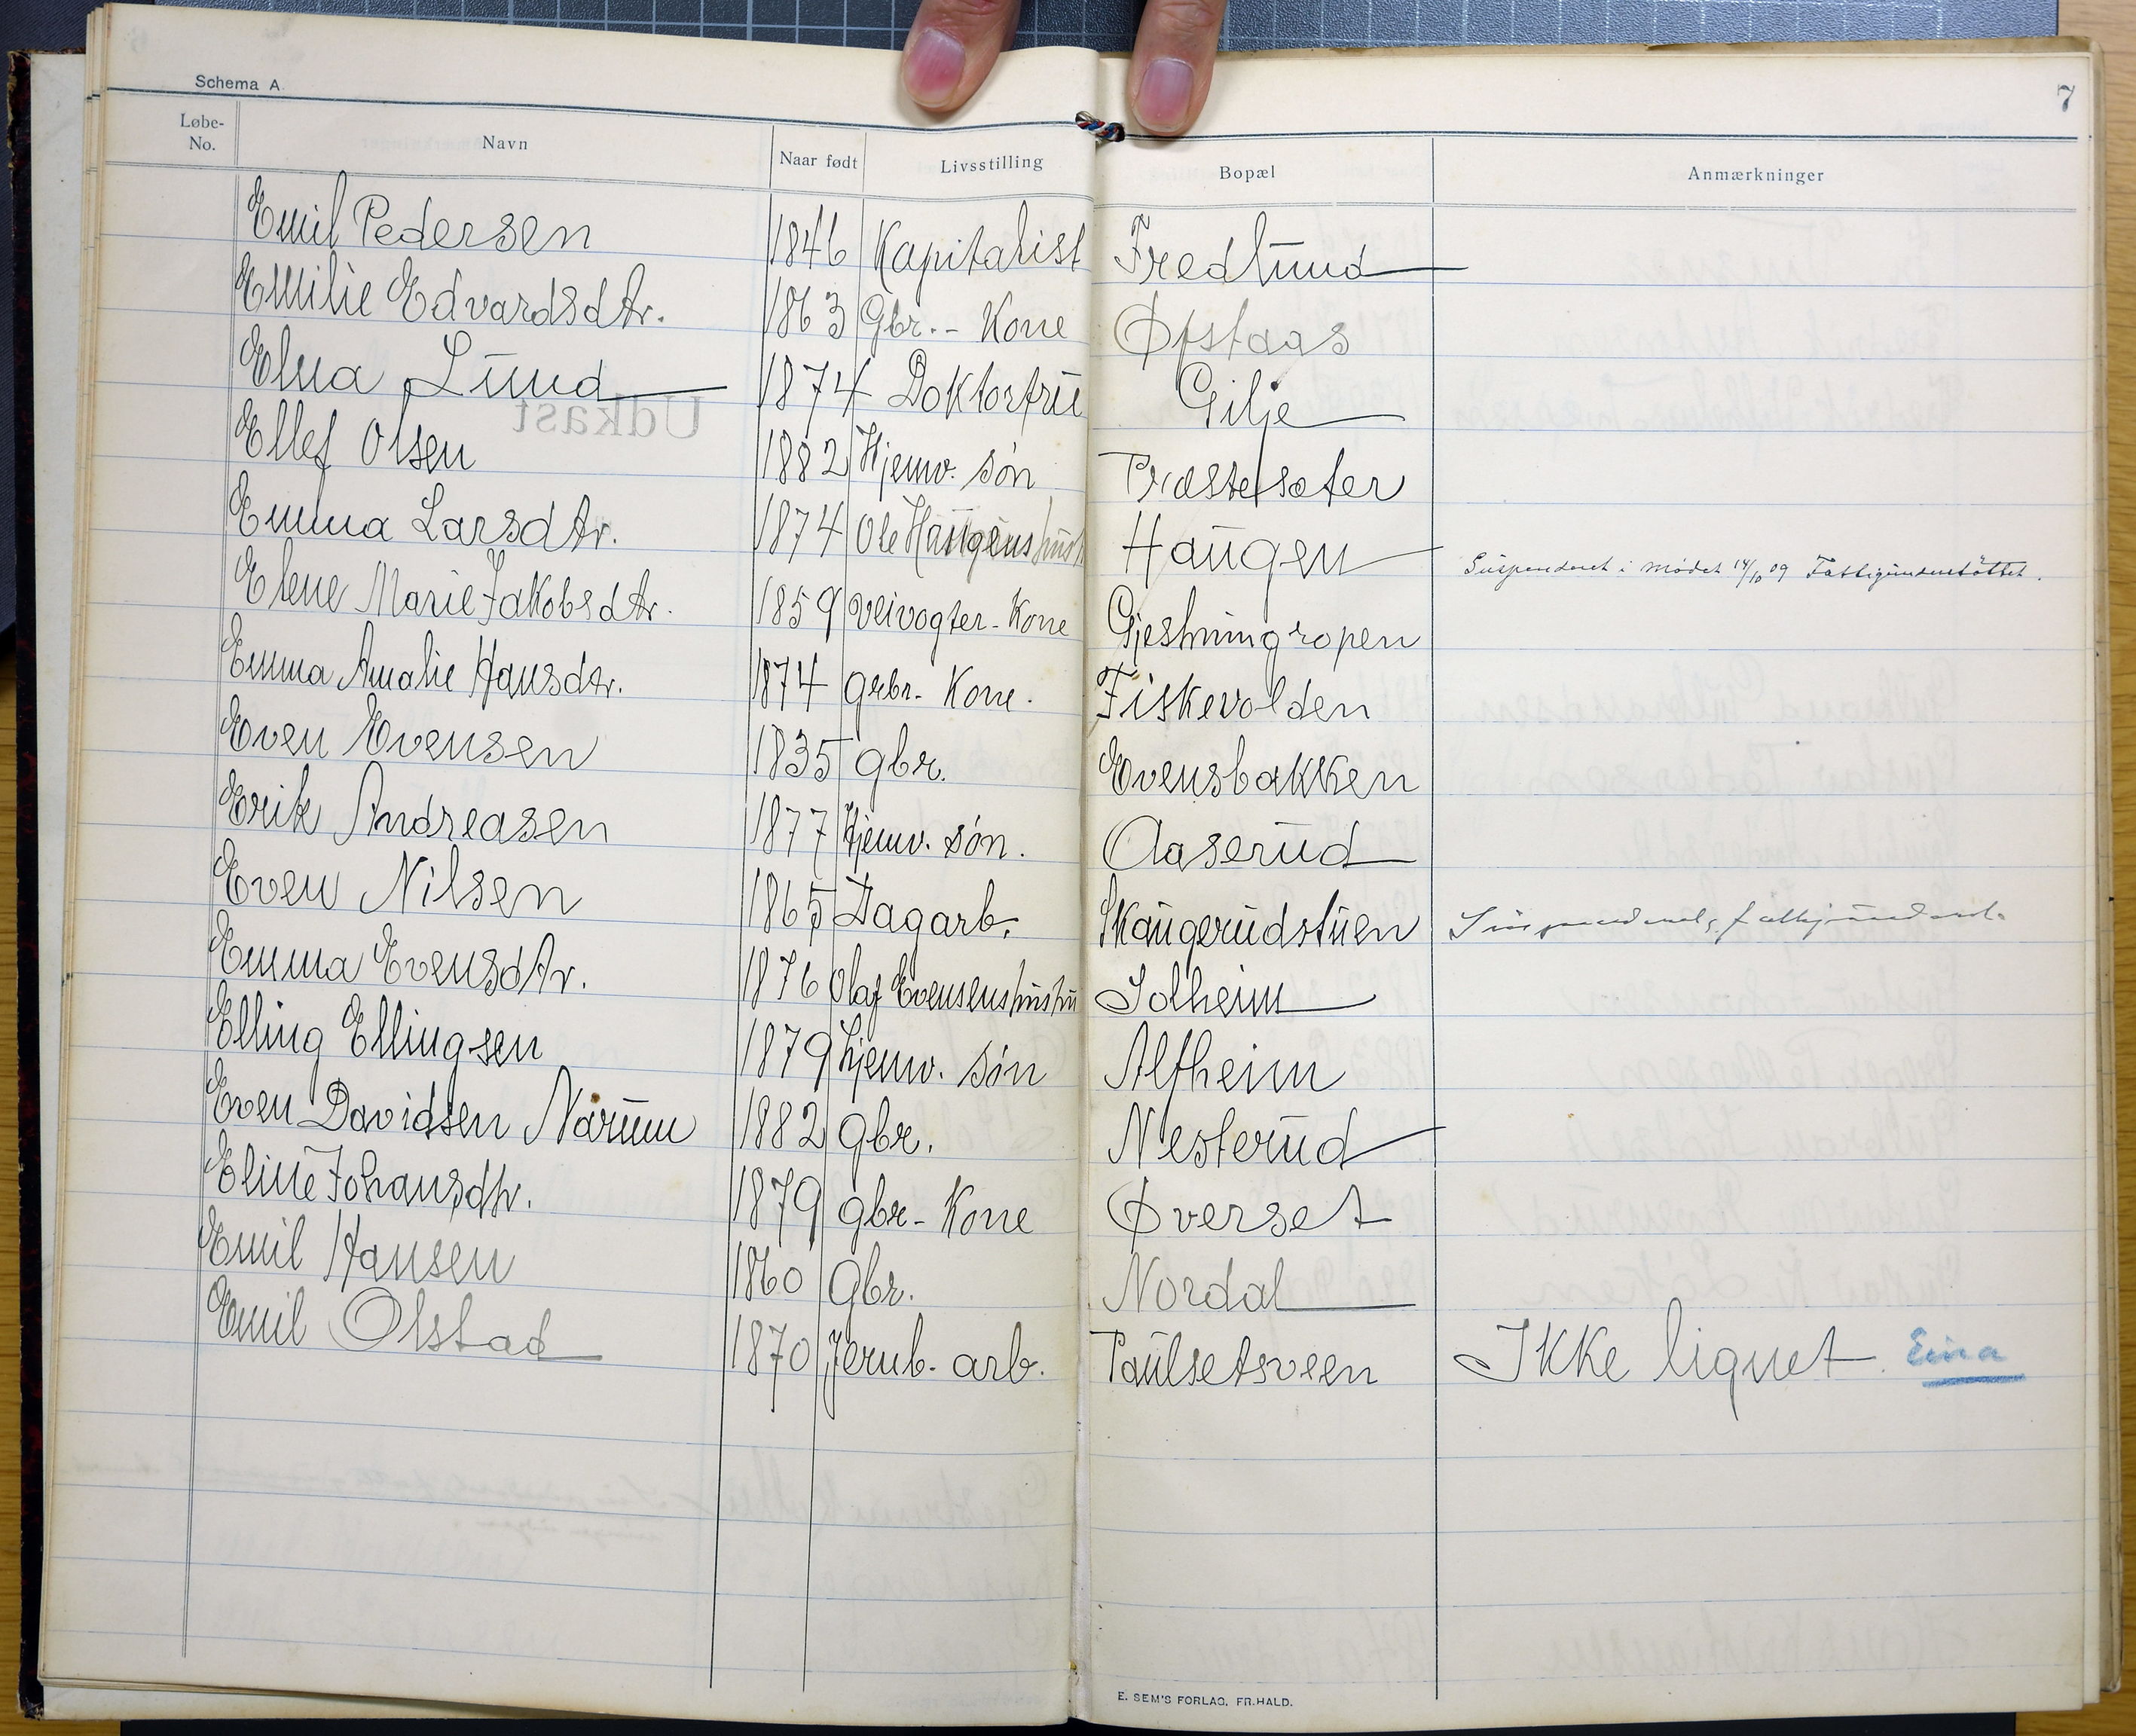 Schema A.
7
Løbe-No. Navn Naar født Livsstilling Bopæl Anmærkninger
Emil Pedersen 1846 Kapitalist Fredlund
Emilie Edvardsdtr. 1863 Gbr.- Kone Øfstaas
Elna Lund 1874 Doktorfru Gilje
Udkast
Ellef Olsen 1882 Hjemv. søn Præstesæter
Emma Larsdtr. 1874 Ole Haugens hustr Haugen Suspenderet i mødet 14/10 09 Fattigunderstøttet.
Elene Marie Jakobsdtr. 1859 Veivogter-Kone
Emma Amalie Hansdtr. 1874 grbr- Kone. Fiskevolden
Even Evensen 1835 gbr. Evensbakken
Erik Andreasen 1877 Hjemv. søn. Aaserud
Even Nilsen 1865 Dagarb. Skaugerudstuen
Emma Evensdtr. 1876 Olaf Evensens hustru Solheim
Elling Ellingsen 1879 hjemv. søn Alfheim
Even Davidsen Narum 1882 gbr. Nesterud
Eline Johansdtr. 1879 gbr- Kone Øverset
Emil Hansen 1860 Gbr. Nordal
Emil Olstad 1870 Jernb. arb. Paulsetsveen Ikke lignet. Eina
E. SEM'S FORLAG, FR.HALD.